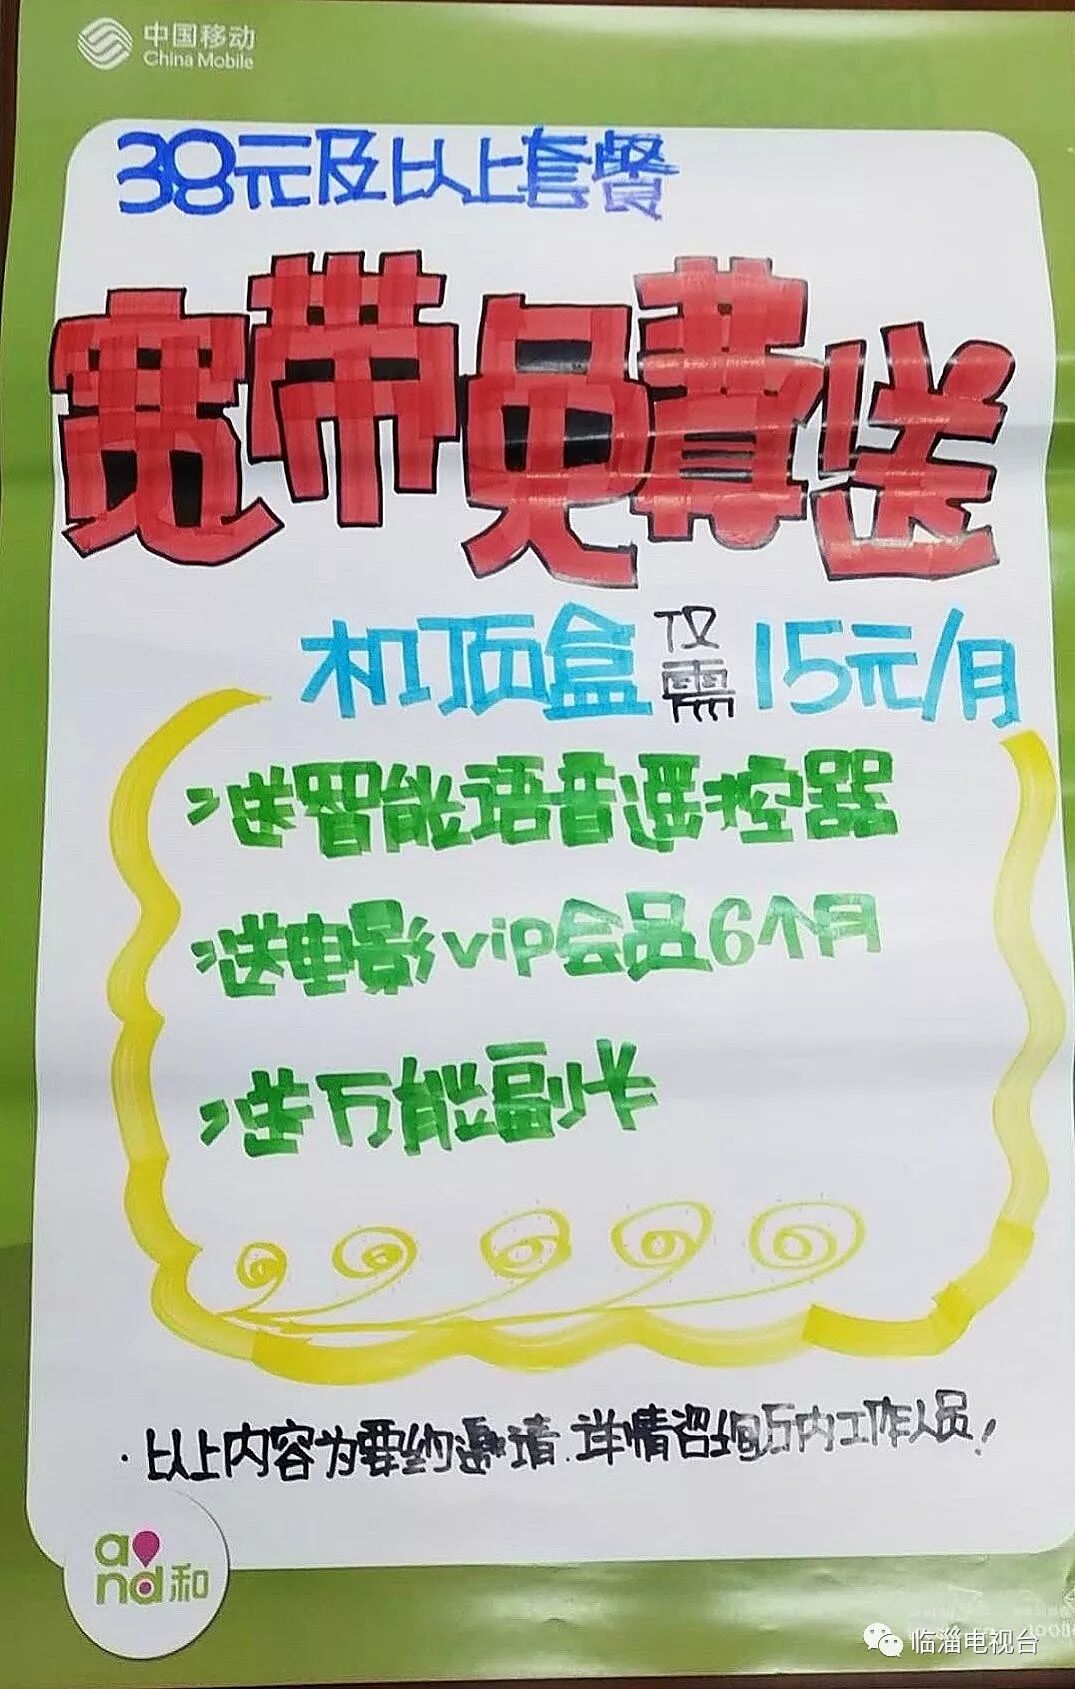 中国移动
China Mobile
38元及以上套餐
宽带免费送
机顶盒仅需15元/月
>送智能语音遥控器
>送电影vip会员6个月
>送万能副卡
·以上内容为要约邀请.详情咨询店内工作人员!
and和
临淄电视台